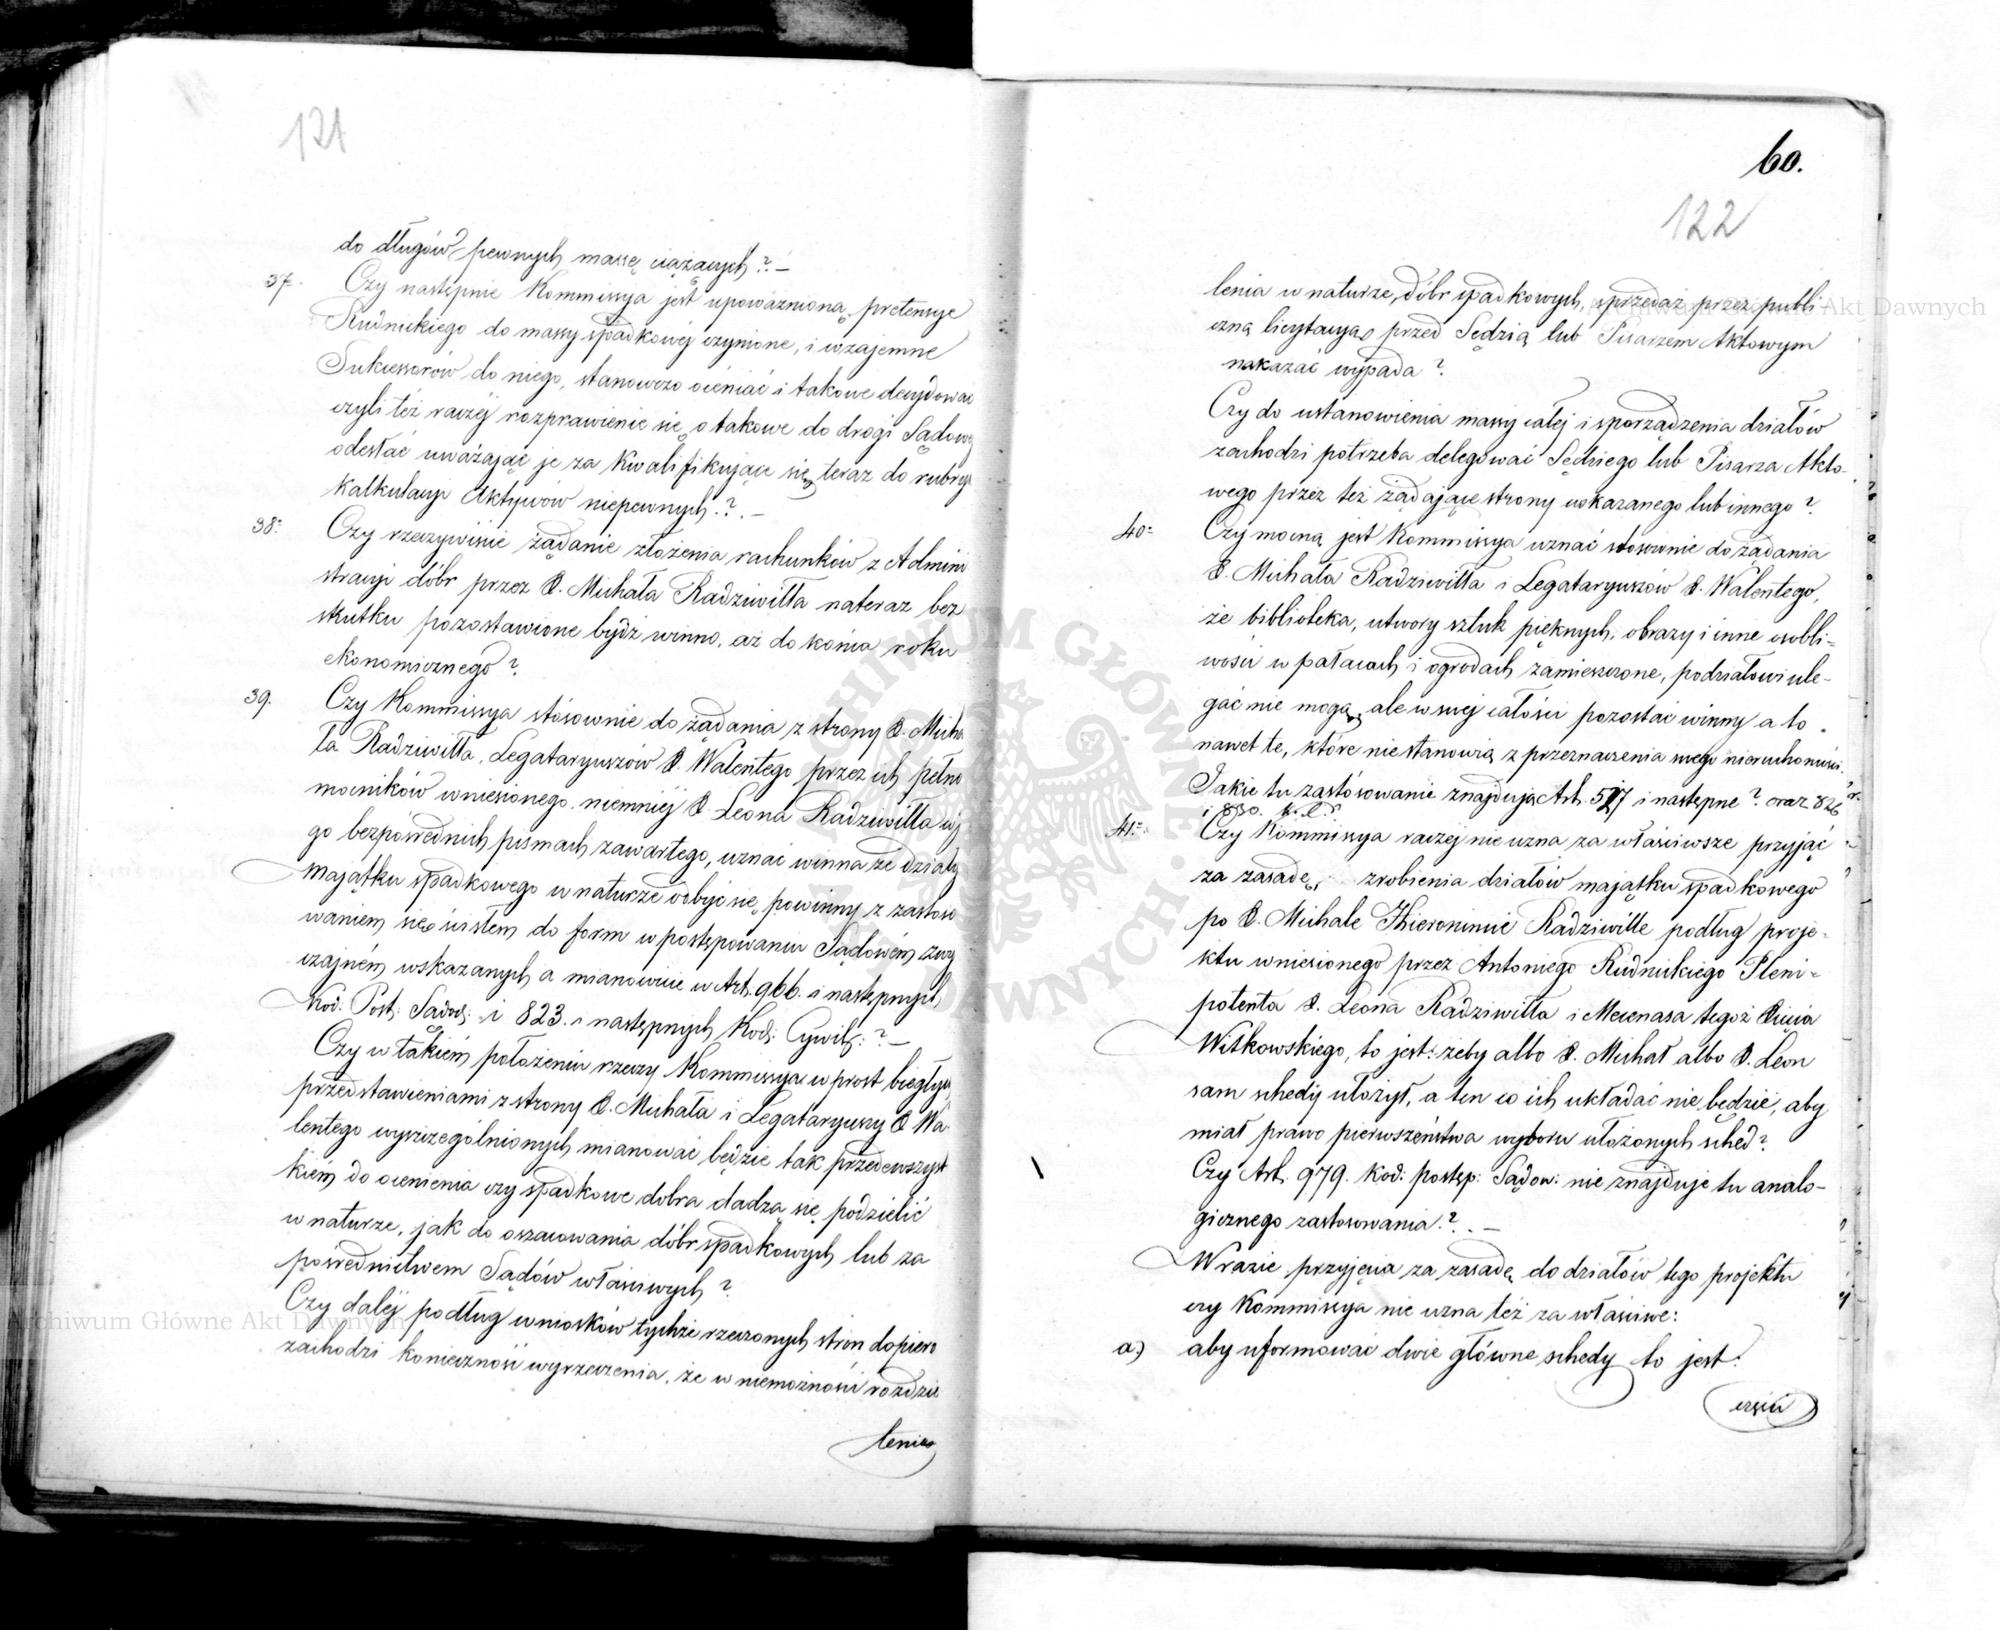 121
do długów pewnych massę ciążących? –
37. Czy następnie Kommissya jest upoważnioną, pretensye
Rudnickiego do massy spadkowéj czynione, i wzajemne
Sukcessorów do niego, stanowczo oceniać i takowe decydować
czyli też raczéj rozprawienie się o takowe do drogi Sądowéj
odesłać uważając je za kwalifikujące się teraz do rubryk
kalkulacyi Aktywów niepewnych? . –
38. Czy rzeczywiście żądanie złożenia rachunków z Admini
stracyi dóbr przez X. Michała Radziwiłła nateraz bez
skutku pozostawione bydź winno, aż do końca roku
ekonomicznego?
39. Czy Kommissya stósownie do żądania z strony X. Micha
ła Radziwiłła, Legataryuszów X. Walentego przez ich pełno
mocników wniesionego niemniéj X Leona Radziwiłła w je
go bezpośrednich pismach zawartego, uznać winna że działy
majątku spadkowego w naturze odbyć się powinny z zastoso
waniem się ścisłem do form w postępowaniu Sądowém zwy
czajném wskazanych a mianowicie w Art. 966. i następnych
Kod: Post: Sądow: i 823. i następnych Kod: Cywil: ? –
Czy w takiém położeniu rzeczy Kommissya wprost biegłych
przedstawieniami z strony X. Michała i Legataryuszy X Wa
lentego wyszczególnionych mianować będzie tak przedewszyst
kiém do ocenienia czy spadkowe dobra dadzą się podzielić
w naturze, jak do oszacowania dóbr spadkowych lub za
pośrednictwem Sądów właściwych?
Czy daléj podług wniosków tychże rzeczonych stron dopiero
zachodzi konieczność wyrzeczenia, że w niemożności rozdzie
lenia
60.
122
lenia w naturze, dóbr spadkowych, sprzedaż przez publi
czną licytacyą przed Sędzią lub Pisarzem Aktowym
nakazać wypada?
Czy do ustanowienia massy całéj i sporządzenia działów
zachodzi potrzeba delegować Sędziego lub Pisarza Akto-
wego przez też żądające strony wskazanego lub innego?
40. Czy mocną jest Kommissya uznać stosownie do żądania
X. Michała Radziwiłła i Legataryuszów X. Walentego,
że biblioteka, utwory sztuk pięknych, obrazy i inne osobli-
wości w pałacach i ogrodach zamieszczone, podziałowi ule-
gać nie mogą, ale w swéj całości pozostać winny a to
nawet te, które nie stanowią z przeznaczenia swego nieruchomości.
Jakie tu zastósowanie znajdują Art. 517 i następne? oraz 826
i 830. K. C.
41. Czy Kommissya raczéj nie uzna za właściwsze przyjąć
za zasadę, zrobienia działów majątku spadkowego
po X. Michale Hieronimie Radziwille podług proje-
ktu wniesionego przez Antoniego Rudnickiego Pleni-
potenta X. Leona Radziwiłła i Mecenasa tegoż Xięcia
Witkowskiego, to jest: żeby albo X. Michał albo X. Leon
sam schedy ułożył, a ten co ich układać nie będzie, aby
miał prawo pierwszeństwa wyboru ułożonych sched?
Czy Art. 979. kod: postęp: Sądow: nie znajduje tu analo-
gicznego zastosowania? . –
W razie przyjęcia za zasadę do działów tego projektu
czy Kommissya nie uzna też za właściwe:
a.) aby uformować dwie główne schedy to jest:
części
Archiwum Główne Akt Dawnych